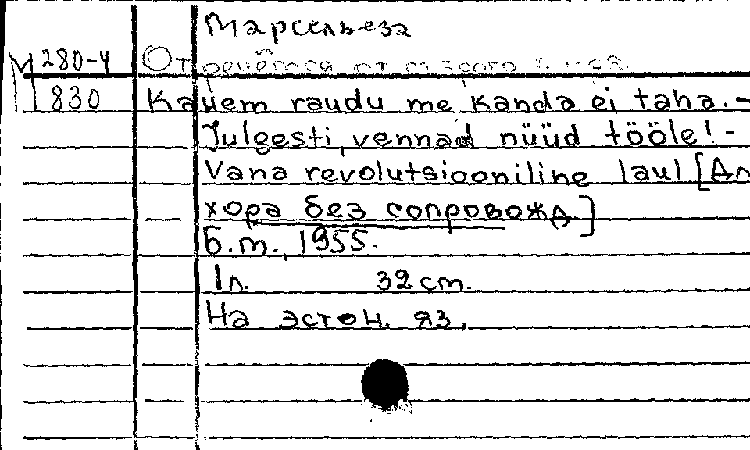 Марсельеза
М 280-4 Отречёмся от старого мира
830 Kauem raudu me kanda ei taha.-
Julgesti, vennad nüüd tööle! -
Vana revolutsiooniline laul [Дл
хора без сопровожд.]
Б.т., 1955.
1л. 32 cm.
На эстон. яз.